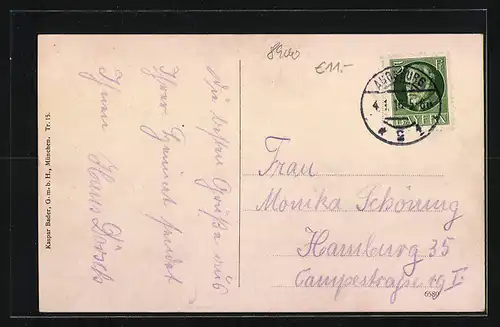 8900
£11.-
AUGSBURG
4.1.
* 2 *
BAYERN
Frau
Monika Schöning
Hamburg 35
Campestrasse 19 I
6580
Die besten Grüße aus
Ihrer Heimat sendet
Ihnen Hans
Kaspar Bader, G. m. b. H., München. Tr. 15.